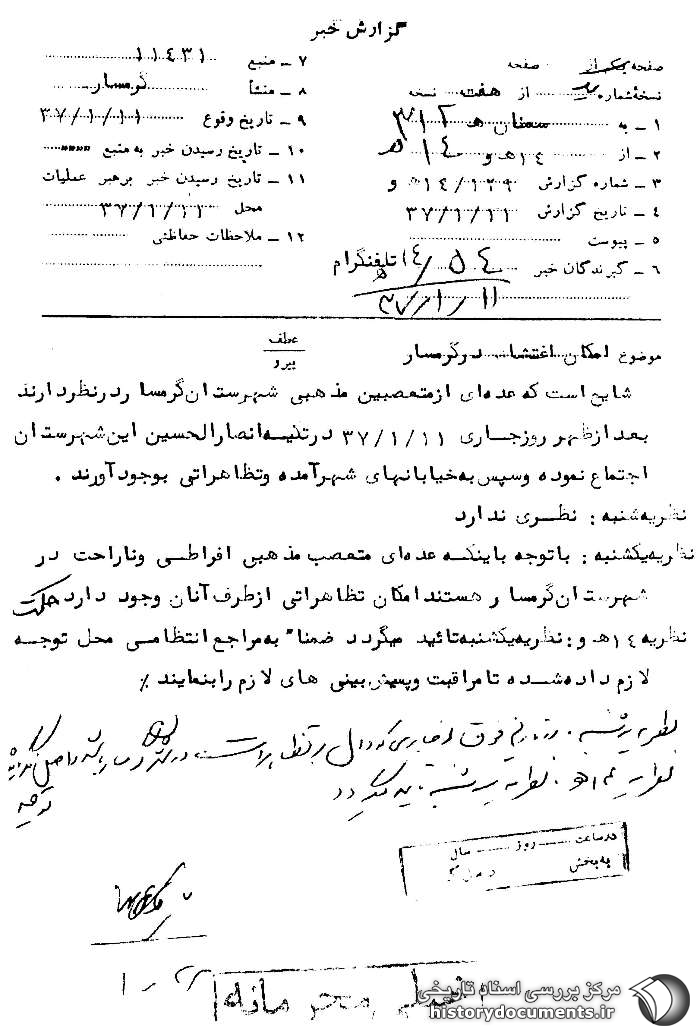 گزارش خبر
صفحه یک از صفحه
نسخه شماره از هفت نسخه
۱ ـ به سمنان ه‍ ۳۱۲
۲ ـ از ۱۴ه‍ و ۱۴ ه‍
۳ ـ شماره گزارش ۱۴/۱۲۹ ه‍ و
۴ ـ تاریخ گزارش ۳۷/۱/۱۱
۵ ـ پیوست
۶ ـ گیرندگان خبر ۱۴/۵۴ تلفنگرام
۳۷/۱/۱۱
۷ ـ منبع ۱۱۴۳۱
۸ ـ منشأ گرمسار
۹ ـ تاریخ وقوع ۳۷/۱/۱۱
۱۰ ـ تاریخ رسیدن خبر به منبع ""
۱۱ ـ تاریخ رسیدن خبر برهبر عملیات
محل ۳۷/۱/۱۱
۱۲ ـ ملاحظات حفاظتی
موضوع امکان اغتشاش درگرمسار
عطف
پیرو
شایع است که عده‌ای ازمتعصبین مذهبی شهرستان گرمسا ردرنظردارند
بعد ازظهر روزجاری ۳۷/۱/۱۱ درتکیه انصارالحسین این شهرستان
اجتماع نموده وسپس به خیابانهای شهرآمده وتظاهراتی بوجودآورند .
نظریه شنبه : نظری ندارد
نظریه یکشنبه : باتوجه باینکه عده‌ای متعصب مذهبی افراطی وناراحت در
شهرستان گرمسا ر هستند امکان تظاهراتی ازطرف آنان وجود دارد
نظریه ۱۴ ه‍ و : نظریه یکشنبه تائید میگردد ضمنا" به مراجع انتظامی محل توجه
لازم داده شده تا مراقبت وپیش بینی های لازم رابنمایند ٪
نظریه سه شنبه .
نظریه ۱۴ ه‍ . نظریه سه شنبه
درساعت روز سال
به بخش
خیلی محرمانه
مرکز بررسی اسناد تاریخی
historydocuments.ir